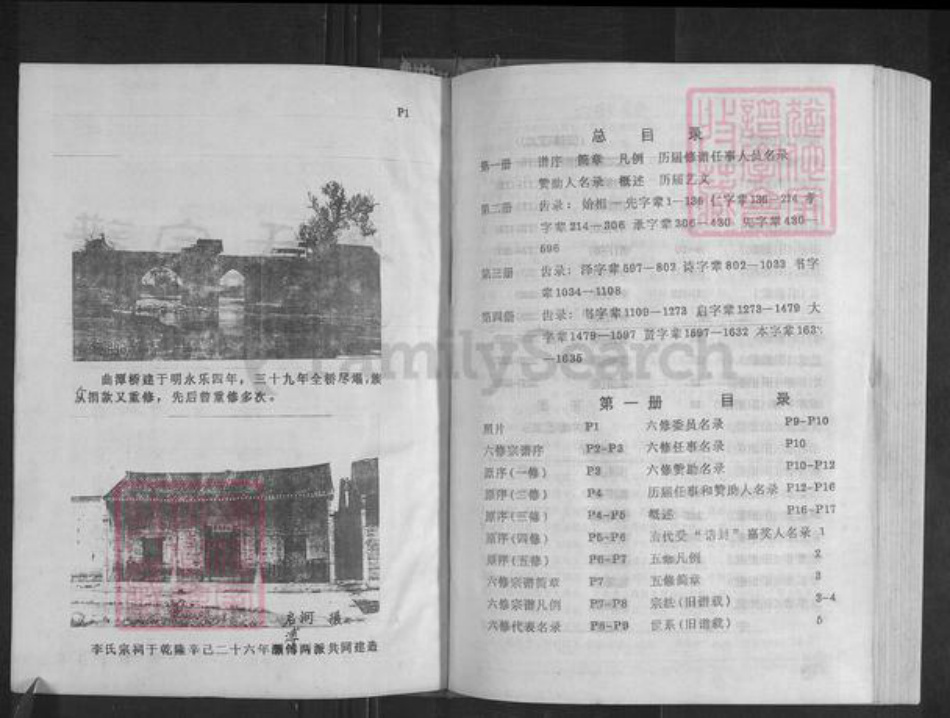 P1
曲潭桥建于明永乐四年，三十九年全桥尽塌，族
众捐款又重修，先后曾重修多次。
李氏宗祠于乾隆辛己二十六年 两派共同建造
总目录
第一册 谱序 简章 凡例 历届修谱任事人员名录
赞助人名录 概述 历届艺文
第二册 齿录：始祖—先字辈1—136 仁字辈136—214 孝
字辈214—306 承字辈306—430 宪字辈430—
596
第三册 齿录：泽字辈597—802 诗字辈802—1033 书字
辈1034—1108
第四册 齿录：书字辈1109—1273 启字辈1273—1479 大
字辈1479—1597 贤字辈1597—1632 本字辈163
—1635
第一册 目录
照片 P1 六修委员名录 P9-P10
六修宗谱序 P2-P3 六修任事名录 P10
原序（一修） P3 六修赞助名录 P10-P12
原序（二修） P4 历届任事和赞助人名录 P12-P16
原序（三修） P4-P5 概述 P16-P17
原序（四修） P5-P6 古代受“诰封”嘉奖人名录 1
原序（五修） P6-P7 五修凡例 2
六修宗谱简章 P7 五修简章 3
六修宗谱凡例 P7-P8 宗法（旧谱载） 3-4
六修代表名录 P8-P9 世系（旧谱载） 5
FamilySearch